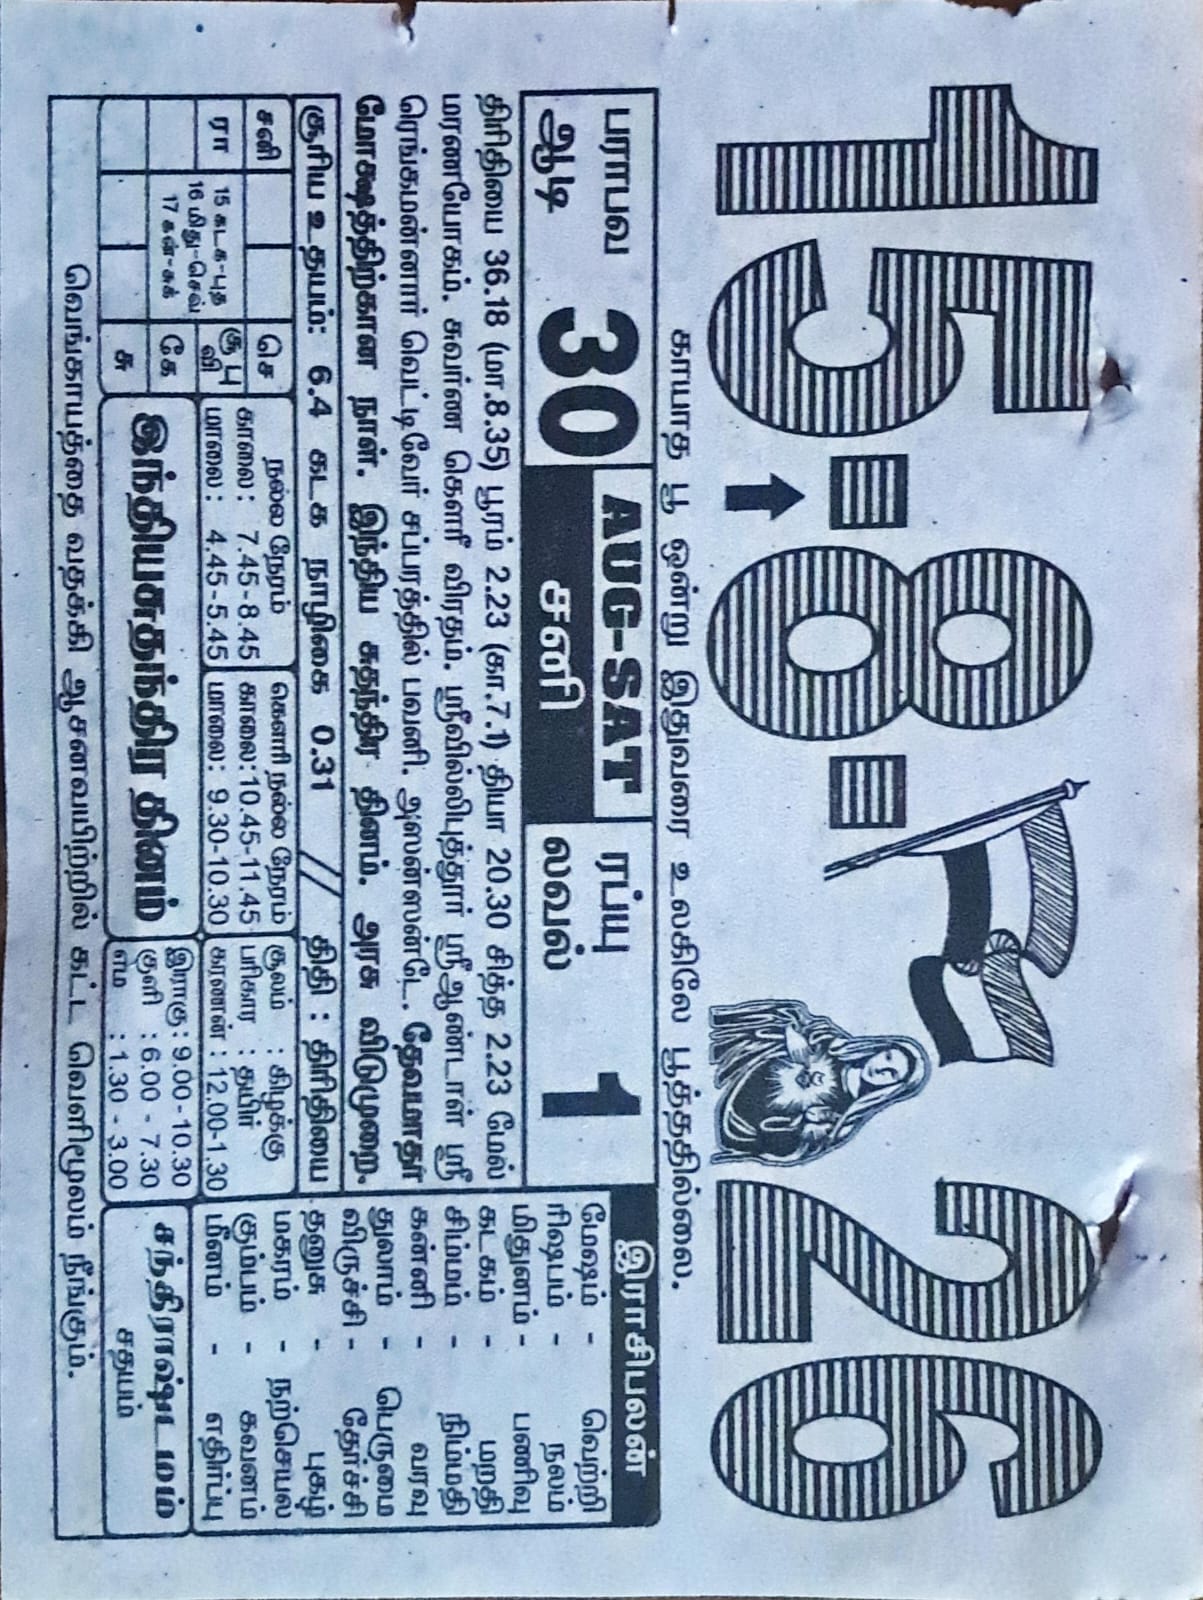 15-8-26
காயாத பூ ஒன்று இதுவரை உலகிலே பூத்ததில்லை.
பராபவ
ஆடி 30
AUG-SAT
சனி
ரப்யு
லவல் 1
திரிதியை 36.18 (மா.8.35) பூரம் 2.23 (கா.7.1) தியா 20.30 சித்த 2.23 மேல்
மரணயோகம். சுவர்ண கௌரி விரதம். ஸ்ரீவில்லிபுத்தூர் ஸ்ரீஆண்டாள் ஸ்ரீ
ரெங்கமன்னார் வெட்டிவேர் சப்பரத்தில் பவனி. அஸன்ஸன்டே. தேவமாதா
மோக்ஷத்திற்கான நாள். இந்திய சுதந்திர தினம். அரசு விடுமுறை.
சூரிய உதயம்: 6.4 கடக நாழிகை 0.31 // திதி : திரிதியை
சனி
ரா
15 கடக-புத
16 மிது-செவ்
17 கன்-சுக்
செ
சூ பு
வி
கே
சு
நல்ல நேரம்
காலை : 7.45-8.45
மாலை : 4.45-5.45
கௌரி நல்ல நேரம்
காலை:10.45-11.45
மாலை: 9.30-10.30
சூலம் : கிழக்கு
பரிகார : தயிர்
கரணன் : 12.00-1.30
இந்தியசுதந்திர தினம்
இராகு : 9.00-10.30
குளி : 6.00 - 7.30
எம : 1.30 - 3.00
வெங்காயத்தை வதக்கி ஆசனவாயிற்றில் கட்ட வெளிமூலம் நீங்கும்.
இராசிபலன்
மேஷம் - வெற்றி
ரிஷபம் - நலம்
மிதுனம் - பணிவு
கடகம் - மறதி
சிம்மம் - நிம்மதி
கன்னி - வரவு
துலாம் - பெருமை
விருச்சி - தேர்ச்சி
தனுசு - புகழ்
மகரம் - நற்செயல்
கும்பம் - கவனம்
மீனம் - எதிர்ப்பு
சந்திராஷ்டமம்
சதயம்